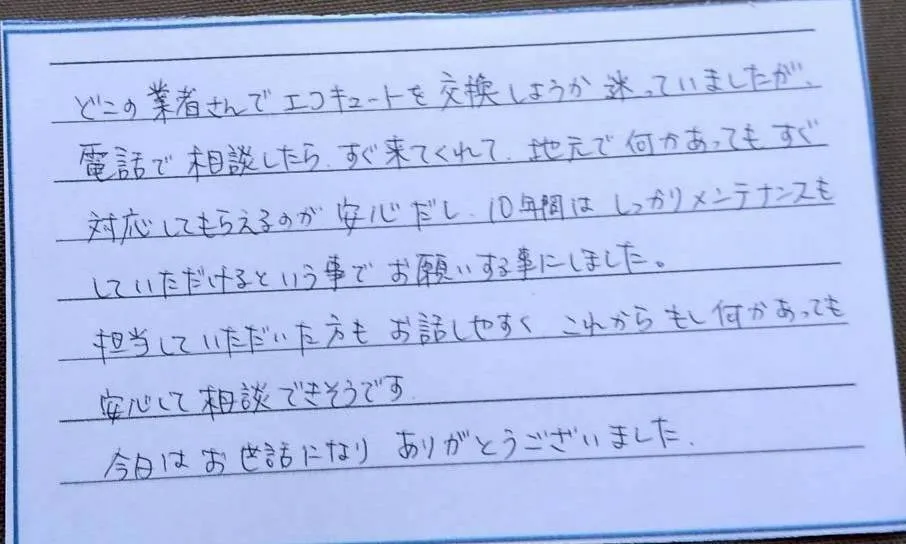 どこの業者さんでエコキュートを交換しようか迷っていましたが、
電話で相談したら、すぐ来てくれて、地元で何かあってもすぐ
対応してもらえるのが安心だし、10年間はしっかりメンテナンスも
していただけるという事でお願いする事にしました。
担当していただいた方もお話しやすくこれからもし何かあっても
安心して相談できそうです.
今日はお世話になりありがとうございました.